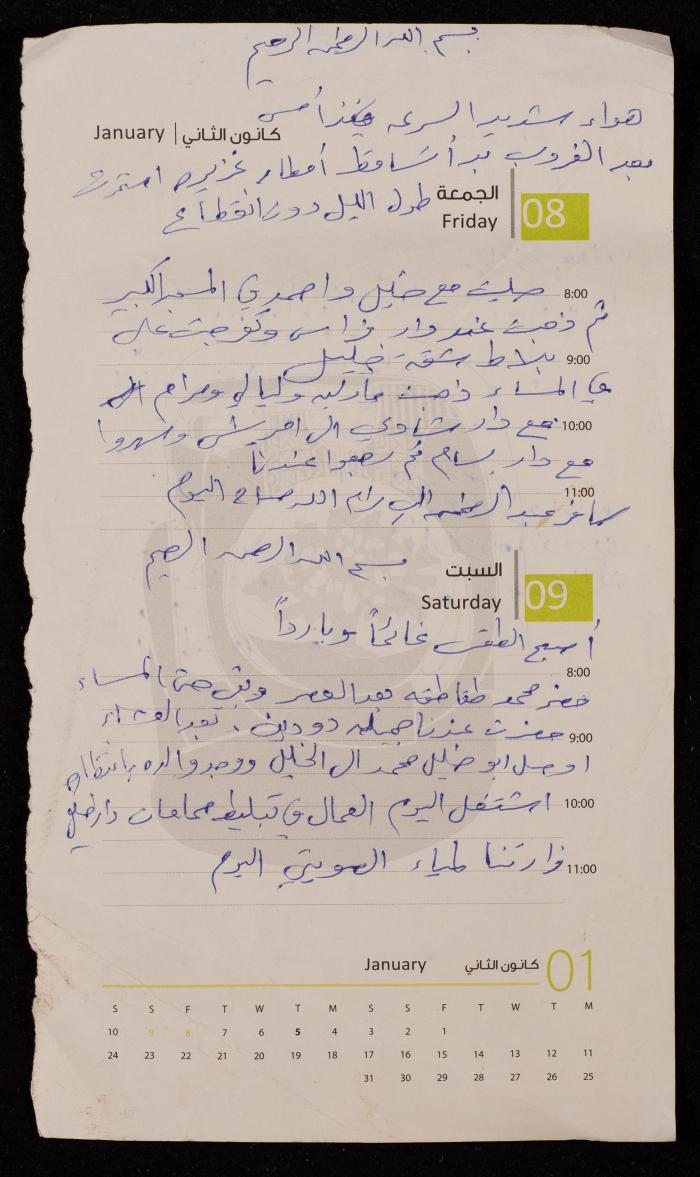 بسم الله الرحمن الرحيم
هواء شديد السرعه منذ أمس
January | كانون الثاني
بعد الغروب بدأ تساقط أمطار غزيره استمرت
الجمعة
Friday
08
طول الليل دون انقطاع
8:00
صليت مع خليل واحمد في المسجد الكبير
ثم ذهبت عند دار فراس وتفرجت على
9:00
بلاط شقة خليل
في المساء ذهبت ماريه وليالي ومرام
10:00
مع دار شادي الى امريش وسهروا
مع دار بسام ثم رجعوا عندنا
11:00
سافر عبد الرحمن الى رام الله صباح اليوم
بسم الله الرحمن الرحيم
السبت
Saturday
09
أصبح الطقس غائماً وبارداً
8:00
حضر محمد طقاطقه بعد العصر وبقي حتى المساء
حضرت عندنا جميله دودين، بعد العشاء
9:00
اوصل ابو خليل محمد الى الخليل ووجد والده بانتظاره
10:00
اشتغل اليوم العمال في تبليط حمامات دار خليل
زارتنا لمياء الصويتي اليوم
11:00
January كانون الثاني 01
S S F T W T M S S F T W T M
10 9 8 7 6 5 4 3 2 1
24 23 22 21 20 19 18 17 16 15 14 13 12 11
31 30 29 28 27 26 25